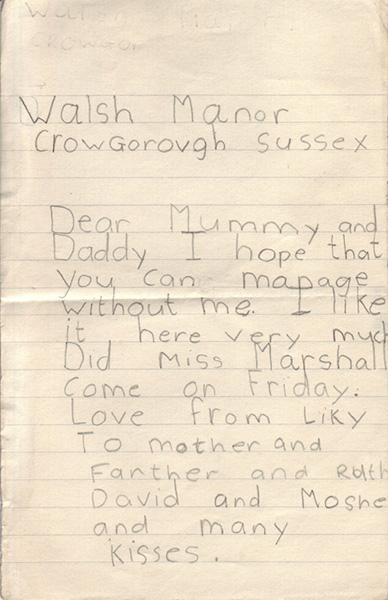 Walsh Manor
Crowgor
Walsh Manor
Crowgorovgh Sussex
Dear Mummy and
Daddy I hope that
you can mapage
without me. I like
it here very much
Did Miss Marshall
Come on Friday.
Love from Liky
To mother and
Fanther and Ruth
David and Moshe
and many
kisses.